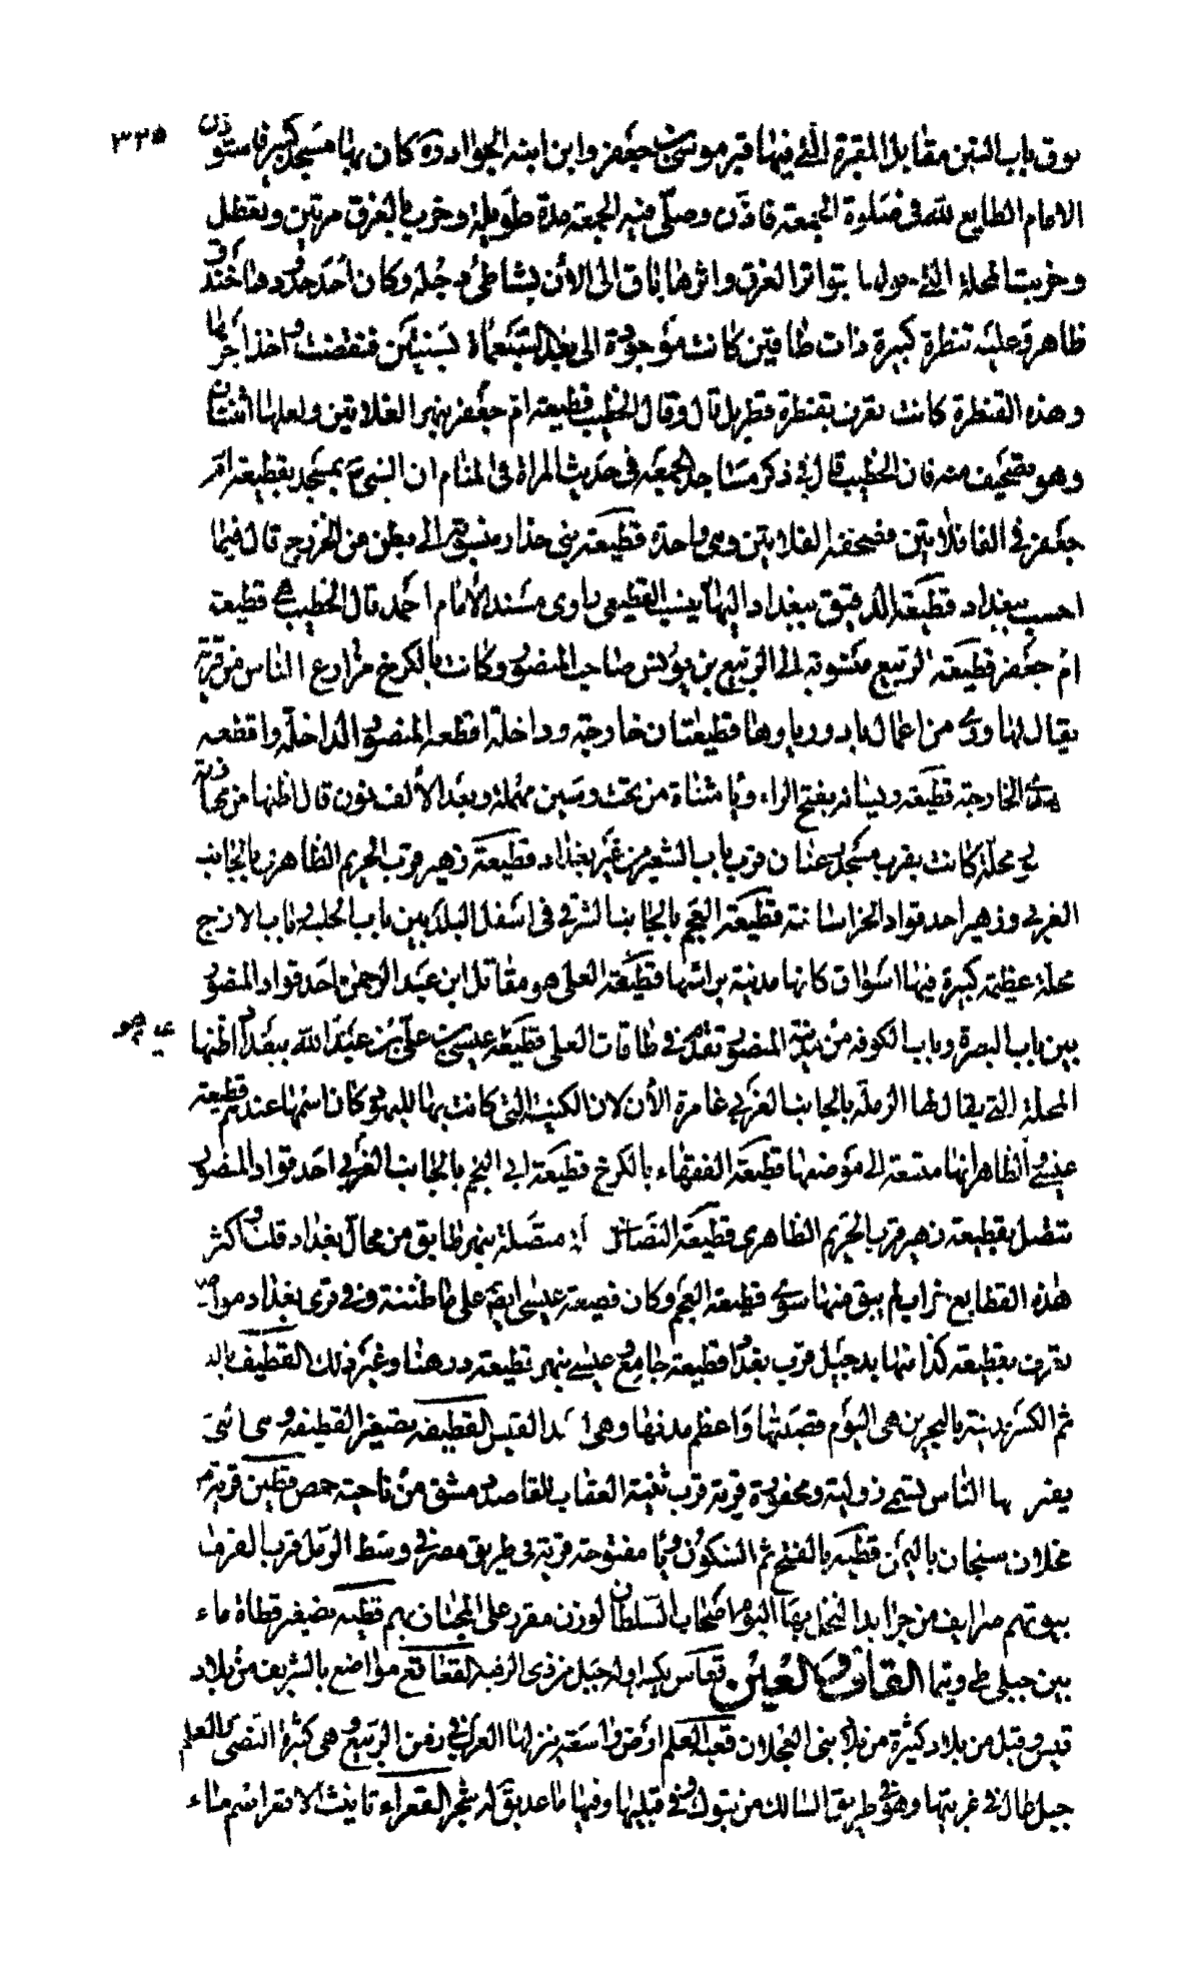 ٣٣٥
فوق باب التبن مقابل المقبرة التي فيها قبر موسى بن جعفر وابن ابنه الجواد وكان بها مسجد كبير فاستوذن
الامام الطايع لله في صلوة الجمعة فاذن وصلى فيه الجمعة مدة طويلة وخرب بالغرق مرتين وتعطل
وخربت المحلة التي حولها بتواتر الغرق واثرها باق الى الأن بشاطئ دجلة وكان احد حدودها خندق
ظاهر وعليه قنطرة كبيرة ذات طاقتين كانت موجودة الى بعيد السبعمأة بسنيتن فنقضت واخذ اجرها
وهذه القنطرة كانت تعرف بقنطرة قطربل قال وقال الخطيب قطيعة ام جعفر بنهر القلايين ولعلها اثنتان
وهو تصحيف منه فان الخطيب قال في ذكر مساجد الجمعة في حديث المراة في المنام ان النبي بمسجد بقطيعة ام
جعفر في القافلائين فصحفه القلايين وهي واحدة قطيعة بني جدار منسوبة الى بطن من الخزرج قال فيما
احسب ببغداد قطيعة الدقيق ببغداد اليها ينسب القطيعي راوى مسند الأمام احمد قال الخطيب هي قطيعة
ام جعفر قطيعة الربيع منسوبة الى الربيع بن يونس صاحب المنصور وكانت بالكرخ مزارع الناس من قرية
يقال لها من اعمال بادوريا وهما قطيعتان خارجة وداخلة اقطعه المنصور الداخلة واقطعه
الخارجة قطيعة ريسانه بفتح الراء ويا مثناة من تحت وسين مهملة وبعد الألف نون قال اظنها من
في محلة كانت بقرب مسجد ابن عنان قرب باب الشعير من غربي بغداد قطيعة زهير قرب الحريم الظاهرى بالجانب
الغربي وزهير احد قواد الخراسانية قطيعة العجم بالجانب الشرقي في اسفل البلد بين باب الحلبة وباب الازج
محلة عظيمة كبيرة فيها اسواق كانها مدينة براسها قطيعة العلى هو مقاتل ابن عبد الرحمن احد قواد المنصور
بين باب البصرة وباب الكوفة من مدينة المنصور تقدم في طاقات العلى قطيعة عيسى بن علي بن عبد الله ببغداد اظنها
المحلة التي يقال لها الرملة بالجانب الغربي عامرة الأن لان الكنيسة التي كانت بها لليهود كان اسمها عندهم قطيعة
عيسى الظاهر انها متسعة الى موضعها قطيعة الفقهاء بالكرخ قطيعة ابي النجم بالجانب الغربي احد قواد المنصور
تتصل بقطيعة زهير قرب الحريم الظاهرى قطيعة النصارى متصلة بنهر طابق من محال بغداد قلت واكثر
هذه القطايع خراب لم يبق منها سوى قطيعة العجم وكان قطيعة عيسى ايضا على ما ظننته وفي قرى بغداد مواضع
تعرف بقطيعة كذا منها بدجيل قرب بغداد قطيعة جامع وعيسى بنهر قطيعة درهنا وغير ذلك القطيف بالفتح
ثم الكسر مدينة بالبحرين هي اليوم قصبتها واعظم مدنها وهي لعبد القيس القطيفة تصغير القطيفة وهي
بها الناس تسمى ذو لبنة ومخفورة قرية قرب ثنية العقاب للقاصد دمشق من ناحية حمص قطين قرية من
مخلاف سنحان باليمن قطيه بالفتح ثم السكون ويا مفتوحة قرية في طريق مصر في وسط الرمل قرب الفرما
بيوتهم صرايف من جرايد النخل وبها اليوم اصحاب السلطان لوزن مقرر على المجتازين بهم قطيه تصغير قطاة ماء
بين جبلي طي وتيما القاف والعين قعاس بكيا وله جبل من ذى الرقيبة القعاقع مواضع بالشريف من بلاد
قيس وقيل من بلاد كثيرة من بلاد بني العجلان قعبة العلم ارض واسعة ينزلها العرب في زمن الربيع وهي كثيرة النصى والعلم
جبل طال في غربيها وهو في طريق السالك من تبوك وفي قبليها وفيها ماعذبة له شجر القعراء تانيث الاقعر اسم ماء